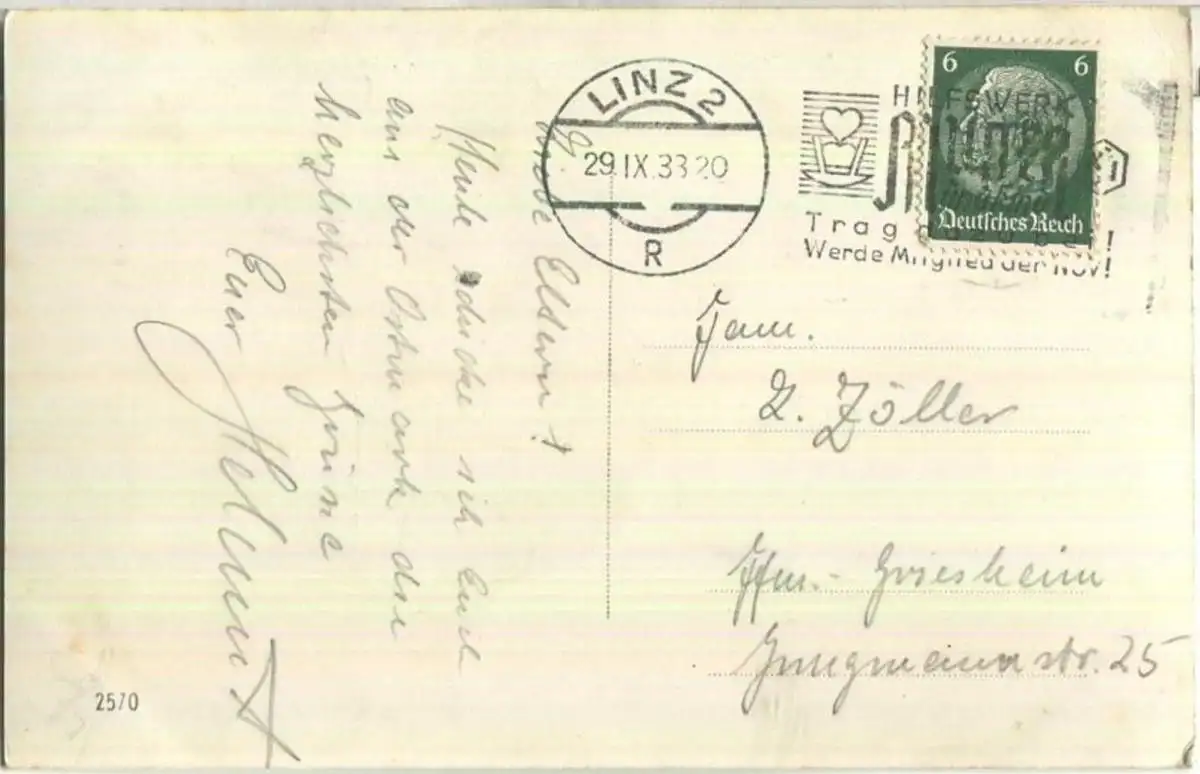 LINZ 2
29.IX.38 20
R
HILFSWERK
MUTTER
Trag
Werde Mitglied der NSV!
6 6
Deutsches Reich
Liebe Eltern!
Heute schicke ich Euch
aus der Ostmark die
herzlichsten Grüße
Euer Helmut
Fam.
L. Zöller
Ffm.- Griesheim
Jungmannstr. 25
2570